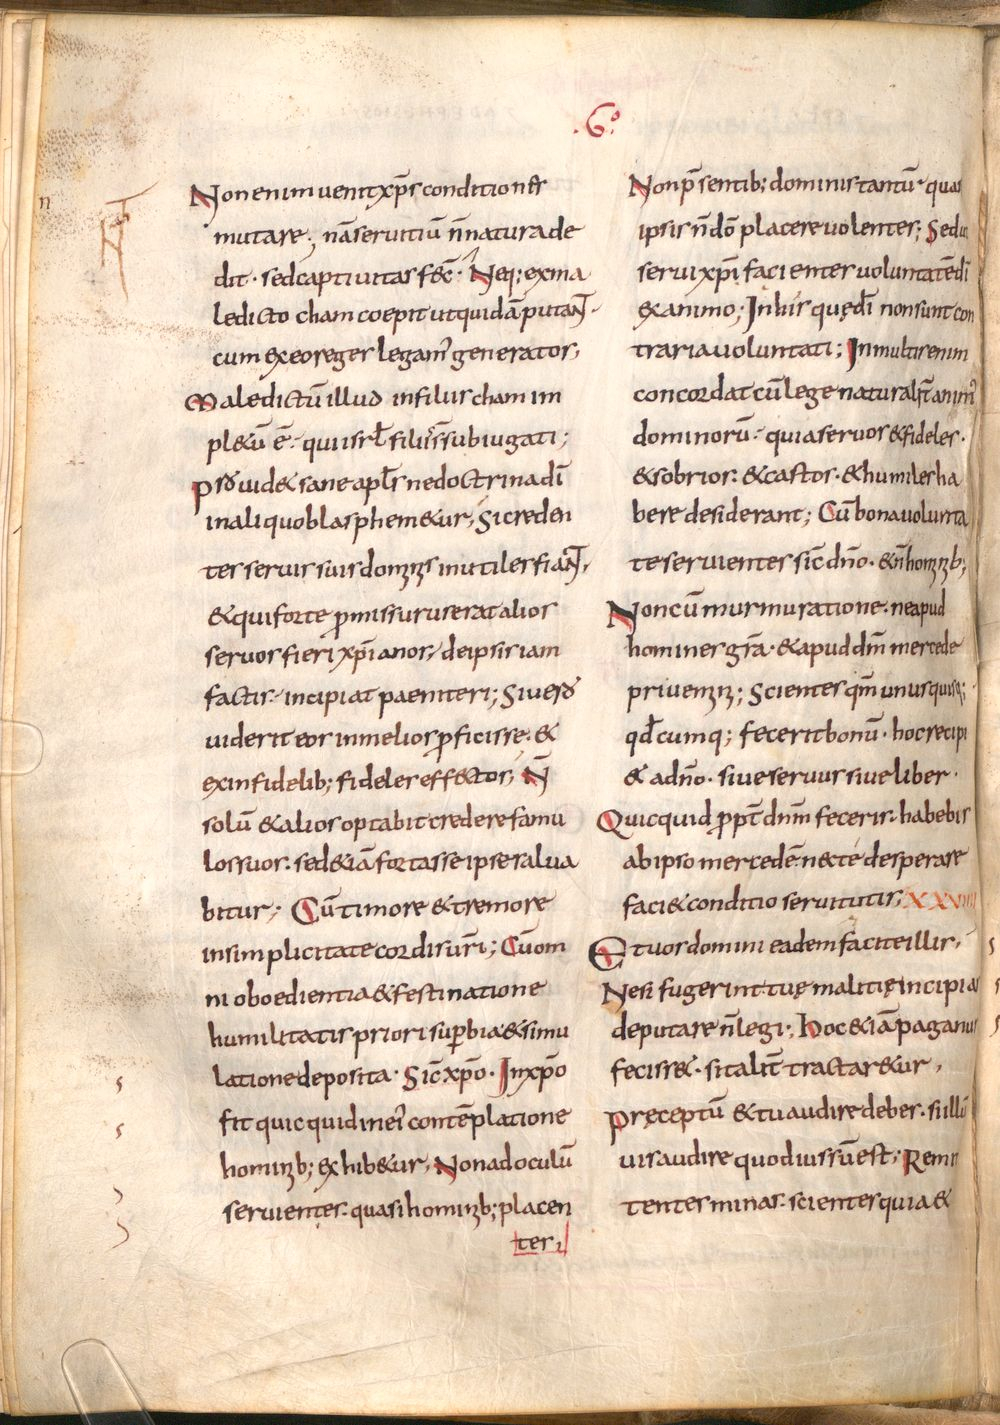 .6.º
Non enim uenit xp̄s conditiones
mutare; nā seruitiū n̄ natura de
dit· sed captiuitas fec̄· Neq; ex ma
ledicto cham coepit ut quidā putaN̄·
cum ex eo reges legamꝰ generatos;
Maledictū illud in filiis cham im
pl&ū ē· qui isrl̄ filiis s̄ subiugati;
Prouid& sane apl̄s ne doctrina dī
in aliquo blasphem&ur; Si creden
tes seruis suis dominis inutiles fiaN̄;
& qui forte p̄missurus erat alios
seruos fieri xp̄ianos· de ipsis iam
factis· incipiat paeniteri; Si uero
uiderit eos in melios ꝓfecisse· &
ex infidelib; fideles eff&ctos; N̄
solū & alios optabit credere famu
los suos· sed &iā fortasse ipse salua
bitur; Cū timore & tremore
in simplicitate cordis uri; Cū om
ni oboedientia & festinatione
humilitatis priori suꝑbia & simu
latione deposita· Sic̄ xp̄o· In xp̄o
fit quicquid in eiꝰ contēplatione
hominib; exhib&ur; Non ad oculū
seruientes· quasi hominib; placen
tes;
Non p̄sentib; dominis tantū· quasi
ipsis n̄ dō placere uolentes; Sed ut
serui xpī facientes uoluntatē dī
ex animo; In his quę dī non sunt con
traria uoluntati; In multis enim
concordat cū lege naturali s̄t animꝰ
dominorū· quia seruos & fideles·
& sobrios· & castos· & humiles ha
bere desiderant; Cū bona uolunta
te seruientes sic̄ dn̄o· & n̄ hominib;
Non cū murmuratione· ne apud
homines grā· & apud dm̄ mercede
priuemini; Scientes qm̄ unusquisq;
qd̄cumq; fecerit bonū· hoc recipi
& a dn̄o· siue seruus siue liber·
Quicquid ꝓpt̄ dnm̄ feceris· habebis
ab ipso mercedē· n& te desperare
faci& conditio seruitutis; XXVIIII
Et uos domini eadem facite illis;
Ne si fugerint tuę malitię incipias
deputare n̄ legi; Hoc &iā paganus
feciss&· si talit̄ tractar&ur;
Pręceptū & tu audire debes· si illū
uis audire quod iussū est; Remit
tentes minas· scientes quia &